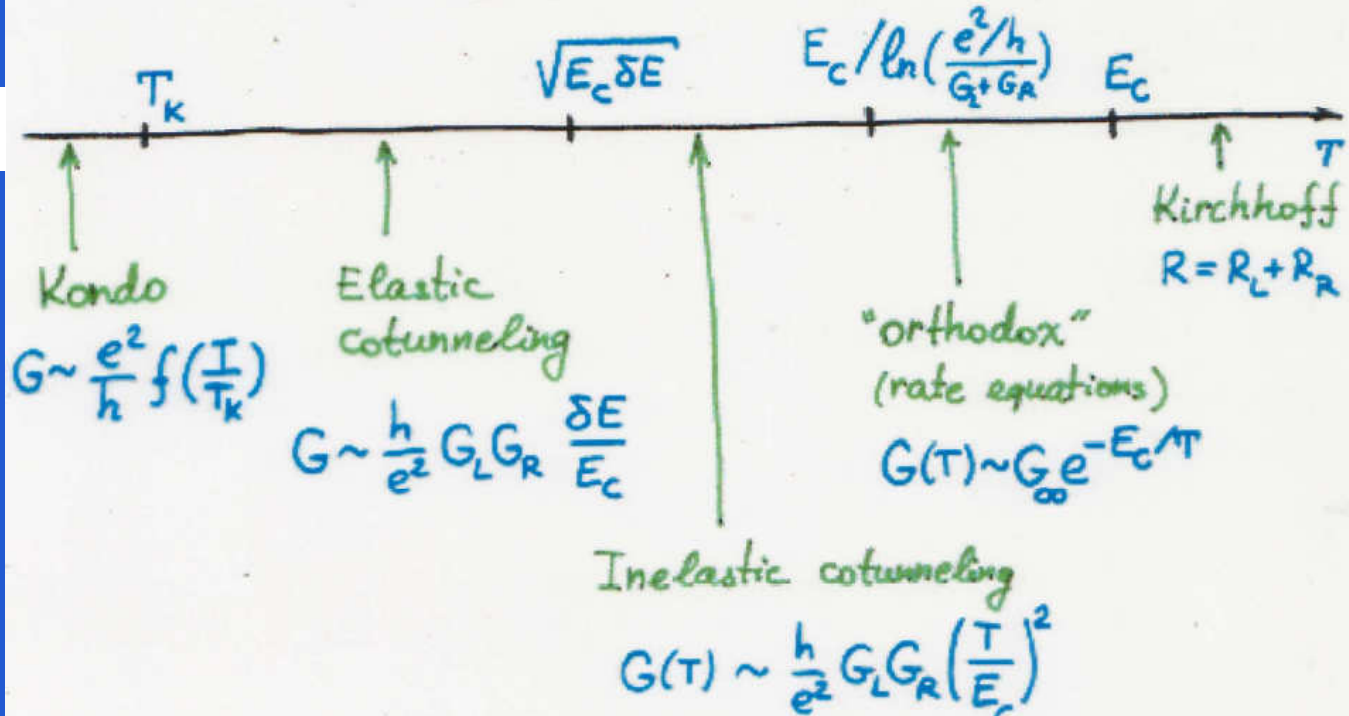 T_K
√(E_C δE)
E_C / ln( (e²/h) / (G_L + G_R) )
E_C
T
Kondo
G ~ e²/h f(T/T_K)
Elastic
cotunneling
G ~ h/e² G_L G_R δE/E_C
Inelastic cotunneling
G(T) ~ h/e² G_L G_R (T/E_C)²
"orthodox"
(rate equations)
G(T) ~ G_∞ e^{-E_C/T}
Kirchhoff
R = R_L + R_R